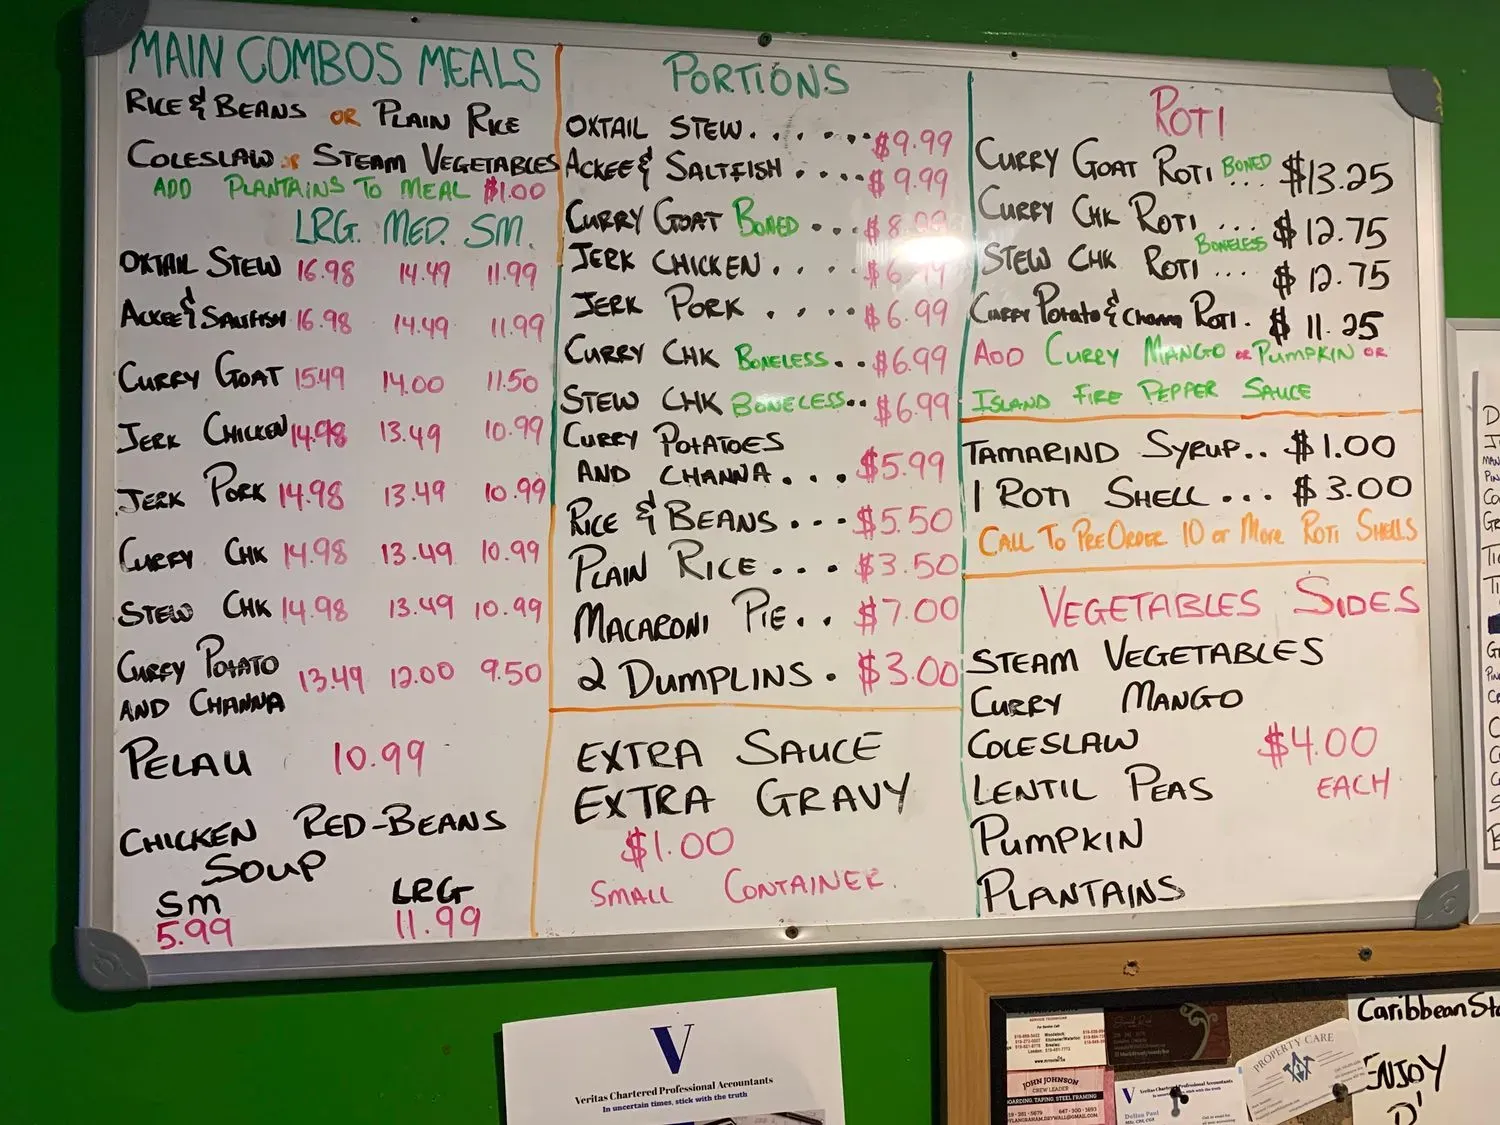 MAIN COMBOS MEALS
RICE & BEANS OR PLAIN RICE
COLESLAW or STEAM VEGETABLES
ADD PLANTAINS TO MEAL $1.00
LRG. MED. SM.
OXTAIL STEW 16.98 14.49 11.99
ACKEE & SALTFISH 16.98 14.49 11.99
CURRY GOAT 15.49 14.00 11.50
JERK CHICKEN 14.98 13.49 10.99
JERK PORK 14.98 13.49 10.99
CURRY CHK 14.98 13.49 10.99
STEW CHK 14.98 13.49 10.99
CURRY POTATO
AND CHANNA 13.49 12.00 9.50
PELAU 10.99
CHICKEN RED-BEANS
SOUP
SM LRG
5.99 11.99
PORTIONS
OXTAIL STEW....... $9.99
ACKEE & SALTFISH .... $9.99
CURRY GOAT BONED ...
JERK CHICKEN ....
JERK PORK .... $6.99
CURRY CHK BONELESS.. $6.99
STEW CHK BONELESS.. $6.99
CURRY POTATOES
AND CHANNA... $5.99
RICE & BEANS... $5.50
PLAIN RICE... $3.50
MACARONI PIE.. $7.00
2 DUMPLINS. $3.00
EXTRA SAUCE
EXTRA GRAVY
$1.00
SMALL CONTAINER.
ROTI
CURRY GOAT ROTI BONED ... $13.25
CURRY CHK ROTI ... $12.75
BONELESS
STEW CHK ROTI .... $12.75
CURRY POTATO & CHANNA ROTI. $11.25
ADD CURRY MANGO OR PUMPKIN OR
ISLAND FIRE PEPPER SAUCE
TAMARIND SYRUP.. $1.00
1 ROTI SHELL... $3.00
CALL TO PREORDER 10 or MORE ROTI SHELLS
VEGETABLES SIDES
STEAM VEGETABLES
CURRY MANGO
COLESLAW $4.00
LENTIL PEAS EACH
PUMPKIN
PLANTAINS
V
Veritas Chartered Professional Accountants
In uncertain times, stick with the truth
JOHN JOHNSON
CREW LEADER
BOARDING, TAPING, STEEL FRAMING
V Veritas Chartered Professional Accountants
Dollan Paul
PROPERTY CARE
Caribbean Sto
ENJOY
D'